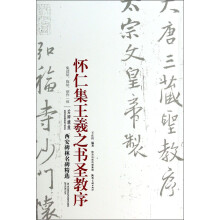 大唐三藏聖教序
太宗文皇帝製
弘福寺沙門
怀仁集王羲之书圣教序
西安碑林名碑精选